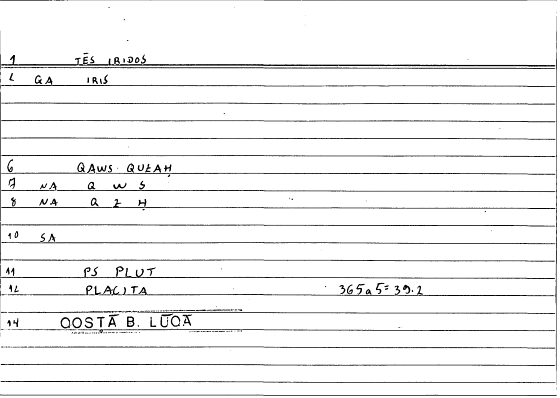 1 TĒS IRIDOS
2 GA IRIS
6 QAWS QUZAḤ
7 NA Q W S
8 NA Q Z Ḥ
10 SA
11 PS PLUT
12 PLACITA 365a5=39.2
14 QOSṬĀ B. LŪQĀ